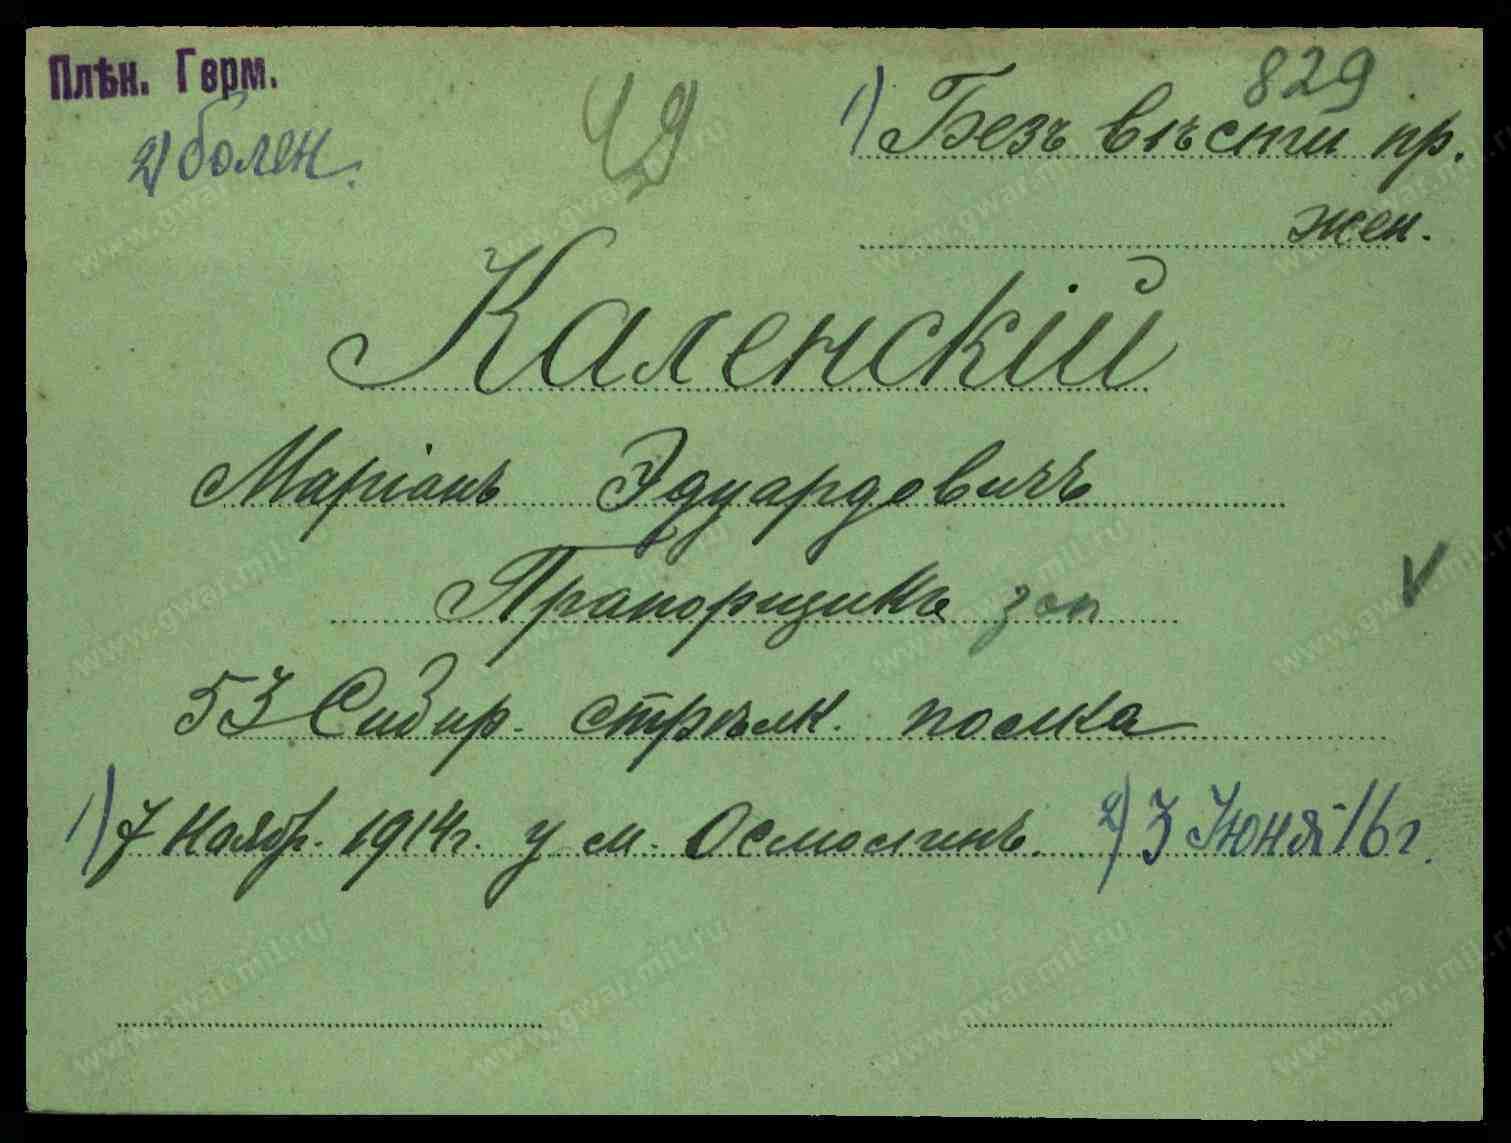 Плѣн. Герм.
829
2) болен.
49
1) Безъ вѣсти пр.
жен.
Каленскій
Маріанъ Эдуардовичъ
Прапорщикъ зап
53 Сибир. стрѣлк. полка
1) 7 Ноябр. 1914г. у м. Осмолинъ. 2) 3 Іюня 16 г.
www.gwar.mil.ru